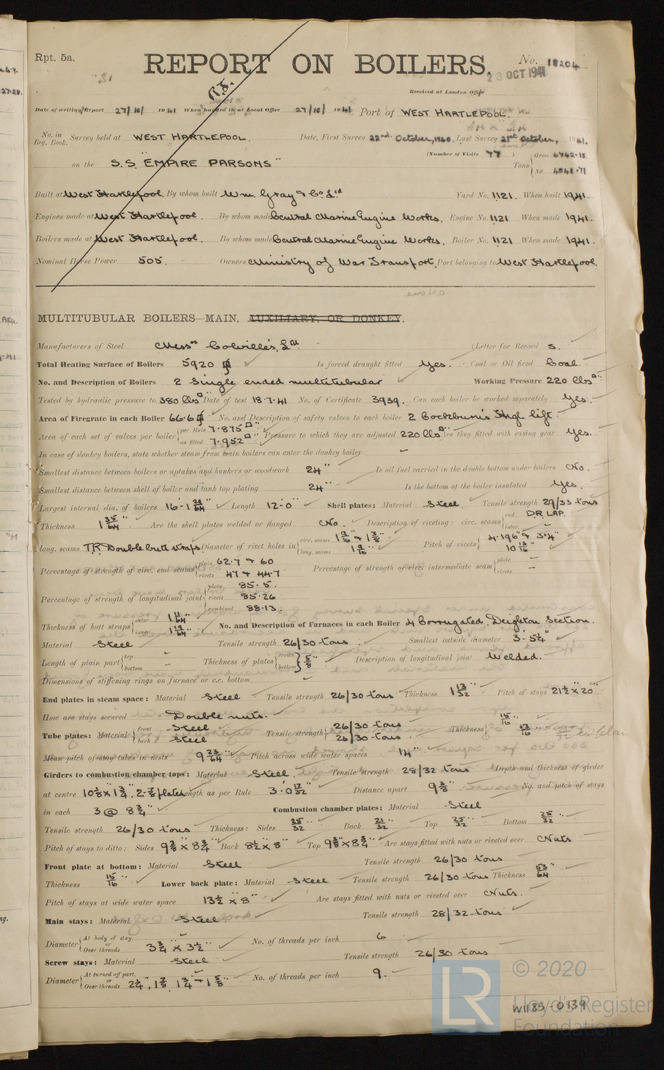 Rpt. 5a.
REPORT ON BOILERS.
No. 18204
23 OCT 1941
Received at London Office
Date of writing Report 27/10/ 1941 When handed in at Local Office 27/10/ 1941 Port of WEST HARTLEPOOL.
No. in Reg. Book. Survey held at WEST HARTLEPOOL. Date, First Survey 22nd October, 1940. Last Survey 21st October, 1941.
(Number of Visits 77 ) Tons Gross 6742.18
on the S.S. "EMPIRE PARSONS" Net 4848.71
Built at West Hartlepool By whom built Wm. Gray & Co. Ltd Yard No. 1121. When built 1941.
Engines made at West Hartlepool. By whom made Central Marine Engine Works. Engine No. 1121 When made 1941.
Boilers made at West Hartlepool. By whom made Central Marine Engine Works. Boiler No. 1121 When made 1941.
Nominal Horse Power 505. Owners Ministry of War Transport. Port belonging to West Hartlepool
MULTITUBULAR BOILERS MAIN, AUXILIARY, OR DONKEY.
Manufacturers of Steel Messrs Colville's, Ltd (Letter for Record S.
Total Heating Surface of Boilers 5920 Is forced draught fitted Yes. Coal or Oil fired Coal.
No. and Description of Boilers 2 Single ended multitubular Working Pressure 220 lbs
Tested by hydraulic pressure to 380 lbs Date of test 18.7.41 No. of Certificate 3939. Can each boiler be worked separately Yes.
Area of Firegrate in each Boiler 66.6 No. and Description of safety valves to each boiler 2 Cockburn's High lift.
Area of each set of valves per boiler per Rule 7.875 as fitted 7.952 Pressure to which they are adjusted 220 lbs Are they fitted with easing gear Yes.
In case of donkey boilers, state whether steam from main boilers can enter the donkey boiler -
Smallest distance between boilers or uptakes and bunkers or woodwork 24" Is oil fuel carried in the double bottom under boilers No.
Smallest distance between shell of boiler and tank top plating 24" Is the bottom of the boiler insulated Yes.
Largest internal dia. of boilers Length 12'.0" Shell plates: Material Steel Tensile strength 29/33 tons
Thickness Are the shell plates welded or flanged No. Description of riveting: circ. seams end D.R. LAP.
long. seams T.R. Double butt straps Diameter of rivet holes in circ. seams long. seams Pitch of rivets 4.196" & 3.4"
Percentage of strength of circ. end seams plate 62.7 & 60 rivets 47 & 44.7 Percentage of strength of circ. intermediate seam plate rivets
Percentage of strength of longitudinal joint plate 85.5. rivets 85.26 combined 88.13.
Thickness of butt straps outer inner No. and Description of Furnaces in each Boiler 4 Corrugated, Deighton Section.
Material Steel Tensile strength 26/30 tons. Smallest outside diameter
Length of plain part top bottom Thickness of plates crown bottom 5/8" Description of longitudinal joint Welded.
Dimensions of stiffening rings on furnace or c.c. bottom -
End plates in steam space: Material Steel Tensile strength 26/30 tons Thickness 1 13/32" Pitch of stays 21½" x 20"
How are stays secured Double nuts.
Tube plates: Material front Steel back Steel Tensile strength 26/30 tons 26/30 tons. Thickness 15/16" 13/16"
Mean pitch of stay tubes in nests 9 23/64" Pitch across wide water spaces 14"
Girders to combustion chamber tops: Material Steel Tensile strength 28/32 tons Depth and thickness of girder
at centre Length as per Rule Distance apart No. and pitch of stays
in each 3 @ 8¾" Combustion chamber plates: Material Steel
Tensile strength 26/30 tons Thickness: Sides 25/32" Back 21/32" Top 25/32" Bottom 25/32"
Pitch of stays to ditto: Sides Back 8½" x 8" Top Are stays fitted with nuts or riveted over Nuts
Front plate at bottom: Material Steel Tensile strength 26/30 tons
Thickness 15/16" Lower back plate: Material Steel Tensile strength 26/30 tons Thickness
Pitch of stays at wide water space 13½" x 8" Are stays fitted with nuts or riveted over Nuts.
Main stays: Material Steel Tensile strength 28/32 tons
Diameter At body of stay, or Over threads 3¾" x 3½" No. of threads per inch 6
Screw stays: Material Steel Tensile strength 26/30 tons
Diameter At turned off part, or Over threads No. of threads per inch 9.
W1185-0139
LR © 2020
Lloyd's Register
Foundation